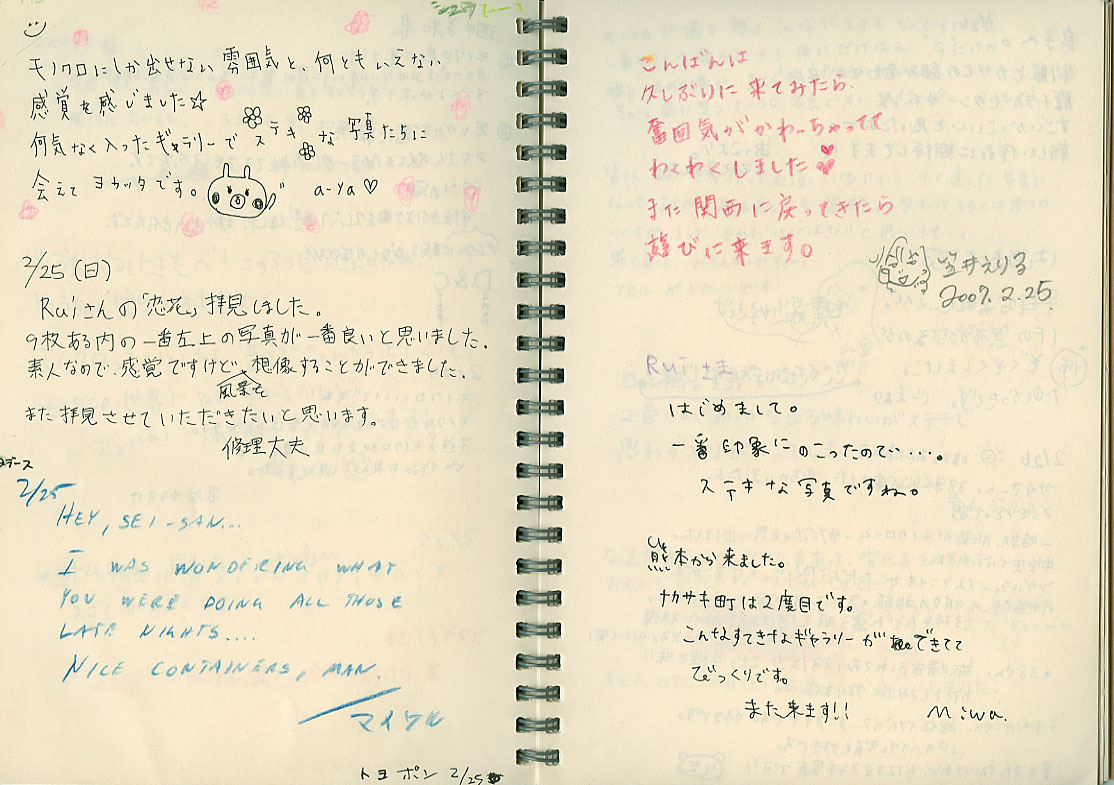 モノクロにしか出せない雰囲気と、何ともいえない
感覚を感じました☆
何気なく入ったギャラリーでステキな写真たちに
会えてヨカッタです。 a-ya♡
2/25(日)
Ruiさんの「恋花」拝見しました。
9枚ある内の一番左上の写真が一番良いと思いました。
素人なので、感覚ですけど、風景を想像することができました。
また拝見させていただきたいと思います。
修理大夫
2/25
HEY, SEI-SAN...
I WAS WONDERING WHAT
YOU WERE DOING ALL THOSE
LATE NIGHTS....
NICE CONTAINERS, MAN.
マイケル
トヨポン 2/25
こんばんは
久しぶりに来てみたら
奮囲気がかわーちゃってて
わくわくしました♥♥
また関西に戻ってきたら
遊びに来ます。
笠井えりる
2007.2.25
Ruiさま
はじめまして。
一番印象にのこったので・・・・。
ステキな写真ですね。
熊本から来ました。
ナカサキ町は2度目です。
こんなすてきなギャラリーができてて
びっくりです。
また来ます!! Miwa.